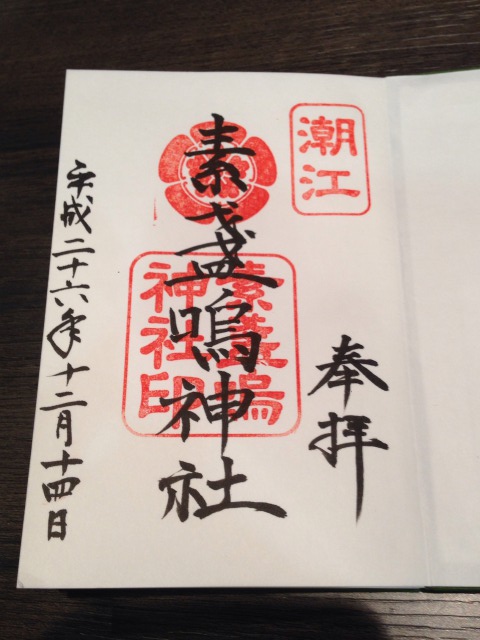 潮江
奉拝
素盞嗚神社
素盞嗚
神社印
平成二十六年十二月十四日